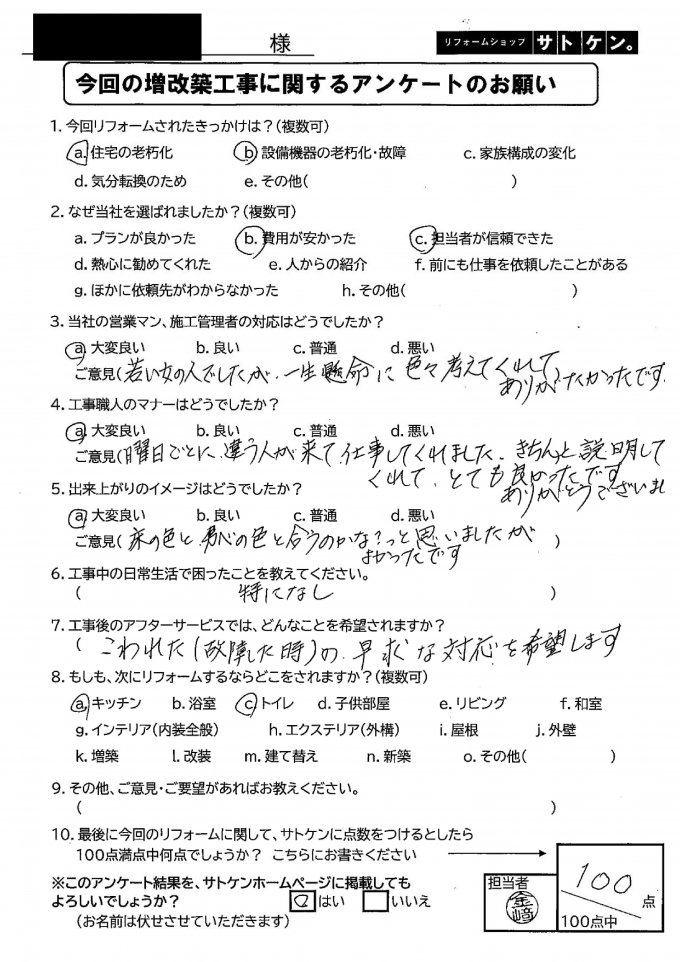 様
リフォームショップ サトケン。
今回の増改築工事に関するアンケートのお願い
1. 今回リフォームされたきっかけは?(複数可)
a. 住宅の老朽化 b. 設備機器の老朽化・故障 c. 家族構成の変化
d. 気分転換のため e. その他( )
2. なぜ当社を選ばれましたか?(複数可)
a. プランが良かった b. 費用が安かった c. 担当者が信頼できた
d. 熱心に勧めてくれた e. 人からの紹介 f. 前にも仕事を依頼したことがある
g. ほかに依頼先がわからなかった h. その他( )
3. 当社の営業マン、施工管理者の対応はどうでしたか?
a. 大変良い b. 良い c. 普通 d. 悪い
ご意見(若い女の人でしたが、一生懸命に色々考えてくれて
ありがたかったです。
4. 工事職人のマナーはどうでしたか?
a. 大変良い b. 良い c. 普通 d. 悪い
ご意見(曜日ごとに、違う人が来て仕事してくれました。きちんと説明して
くれて、とても良かったです
ありがとうございま
5. 出来上がりのイメージはどうでしたか?
a. 大変良い b. 良い c. 普通 d. 悪い
ご意見(床の色と の色と合うのかな?っと思いましたが )
よかったです
6. 工事中の日常生活で困ったことを教えてください。
( 特になし )
7. 工事後のアフターサービスでは、どんなことを希望されますか?
( こわれた(故障した時)の、早求な対応を希望します
8. もしも、次にリフォームするならどこをされますか?(複数可)
a. キッチン b. 浴室 c. トイレ d. 子供部屋 e. リビング f. 和室
g. インテリア(内装全般) h. エクステリア(外構) i. 屋根 j. 外壁
k. 増築 l. 改装 m. 建て替え n. 新築 o. その他( )
9. その他、ご意見・ご要望があればお教えください。
( )
10. 最後に今回のリフォームに関して、サトケンに点数をつけるとしたら
100点満点中何点でしょうか? こちらにお書きください
※このアンケート結果を、サトケンホームページに掲載しても
よろしいでしょうか? はい いいえ
(お名前は伏せさせていただきます)
担当者
金﨑
100 点
100点中